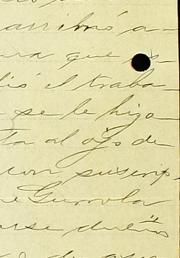 arribó a-
ra que s-
dió el traba-
se le hizo
ta al ojo de
con suscrip-
e Gurrola
arse dueños